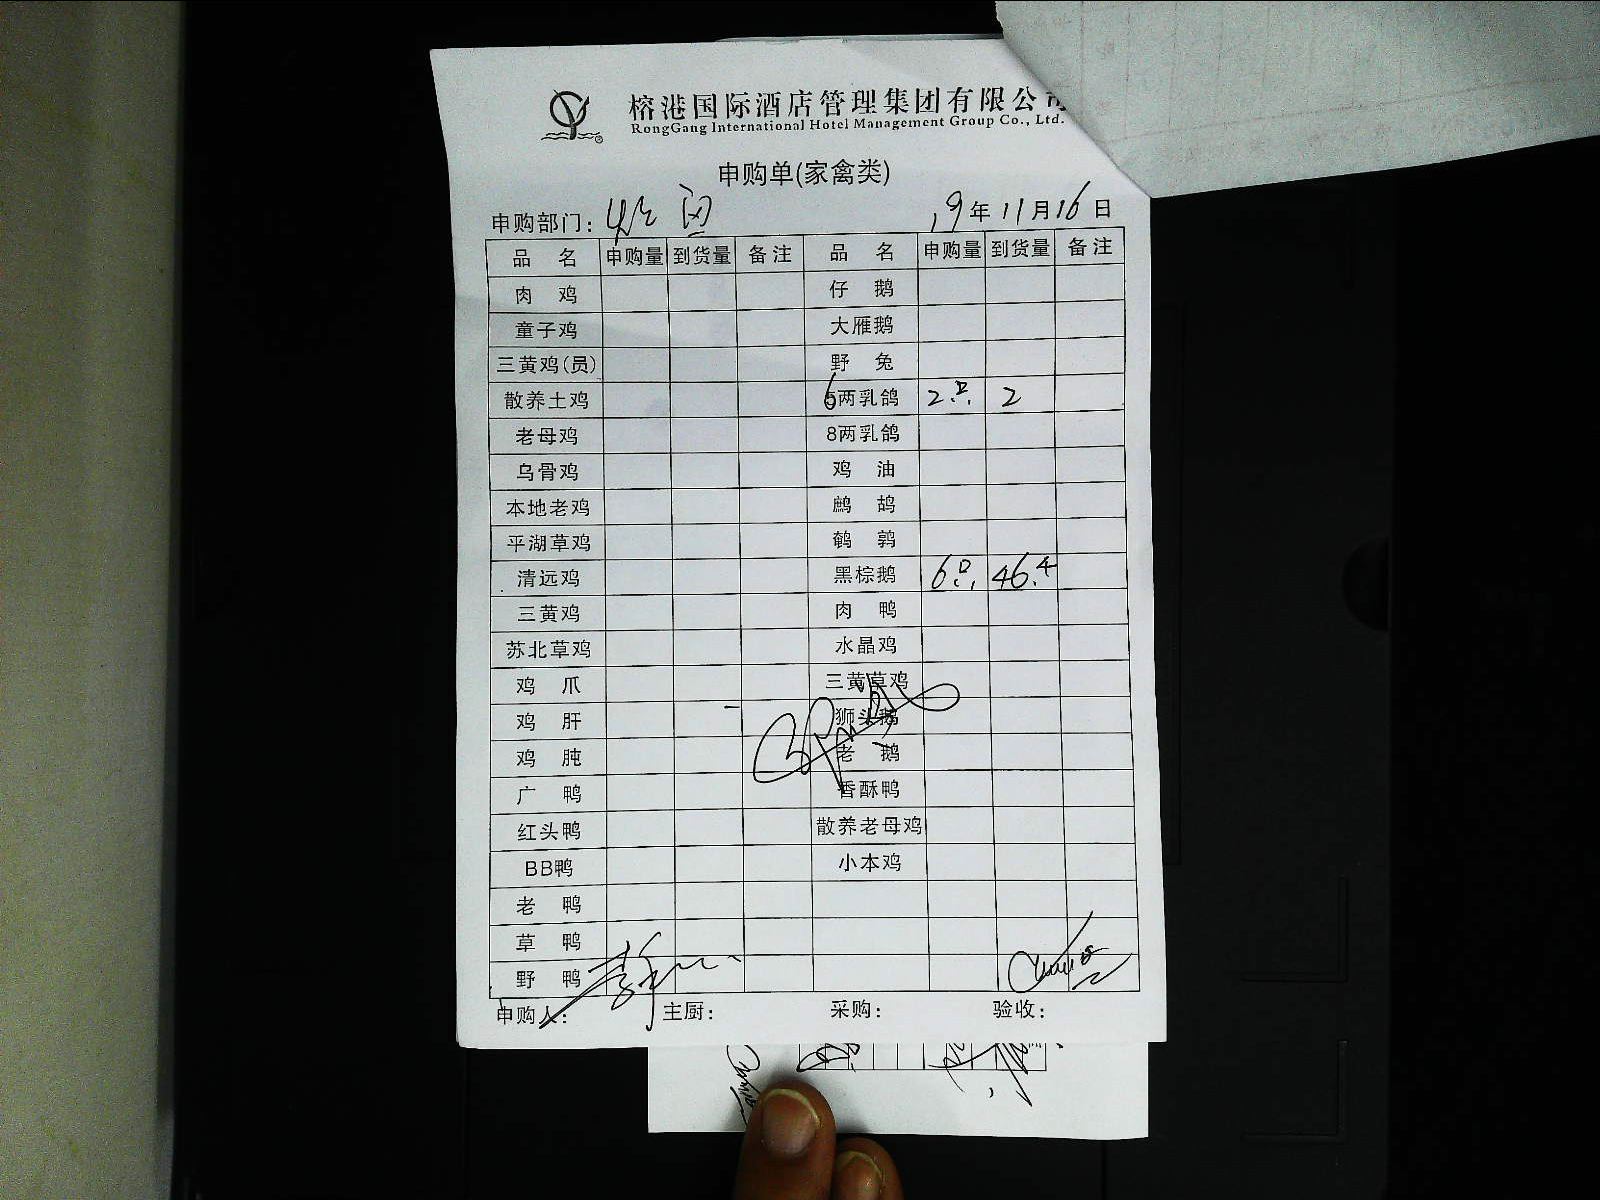 榕港国际酒店管理集团有限公司
RongGang International Hotel Management Group Co., Ltd.
申购单(家禽类)
申购部门: 19年11月16日
品 名 申购量 到货量 备注 品 名 申购量 到货量 备注
肉 鸡 仔 鹅
童子鸡 大雁鹅
三黄鸡(员) 野 兔
散养土鸡 6两乳鸽 2只 2
老母鸡 8两乳鸽
乌骨鸡 鸡 油
本地老鸡 鹧 鸪
平湖草鸡 鹌 鹑
清远鸡 黑棕鹅 6只 46.4
三黄鸡 肉 鸭
苏北草鸡 水晶鸡
鸡 爪 三黄草鸡
鸡 肝 狮头鹅
鸡 肫 老 鹅
广 鸭 香酥鸭
红头鸭 散养老母鸡
BB鸭 小本鸡
老 鸭
草 鸭
野 鸭
申购人: 主厨: 采购: 验收: